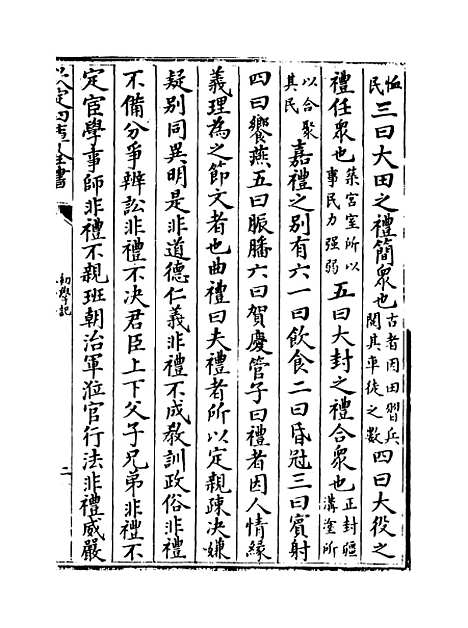 恤民三曰大田之禮簡衆也古者因田習兵閱其車徒之數四曰大役之
禮任衆也築宮室所以事民力强弱五曰大封之禮合衆也正封疆溝塗所
以合聚其民嘉禮之别有六一曰飲食二曰昏冠三曰賓射
四曰饗燕五曰脤膰六曰賀慶管子曰禮者因人情緣
義理為之節文者也曲禮曰夫禮者所以定親疎决嫌
疑别同異明是非道德仁義非禮不成教訓政俗非禮
不備分爭辨訟非禮不决君臣上下父子兄弟非禮不
定宦學事師非禮不親班朝治軍涖官行法非禮威嚴
欽定四庫全書
初學記
二